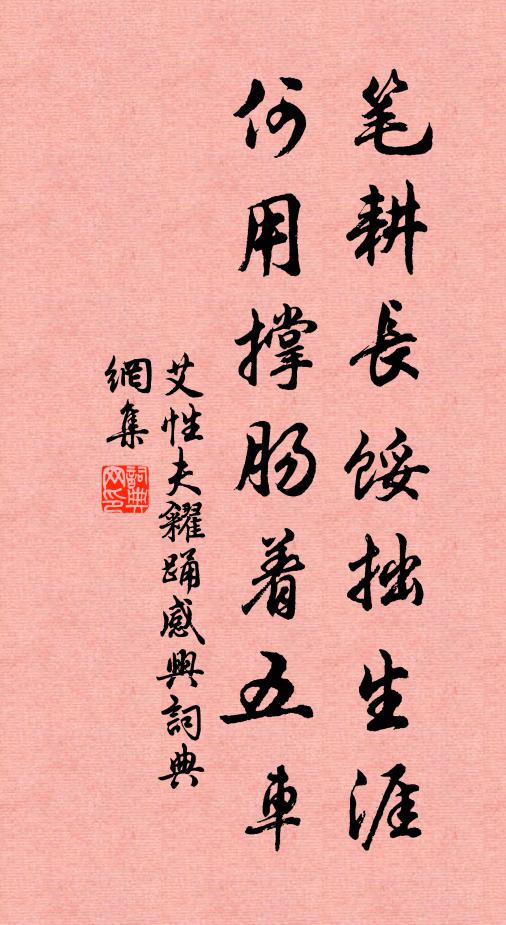 笔耕長餒拙生涯
何用撑肠着五車
艾性夫糴踊感興詞典
網集
詞典
网印